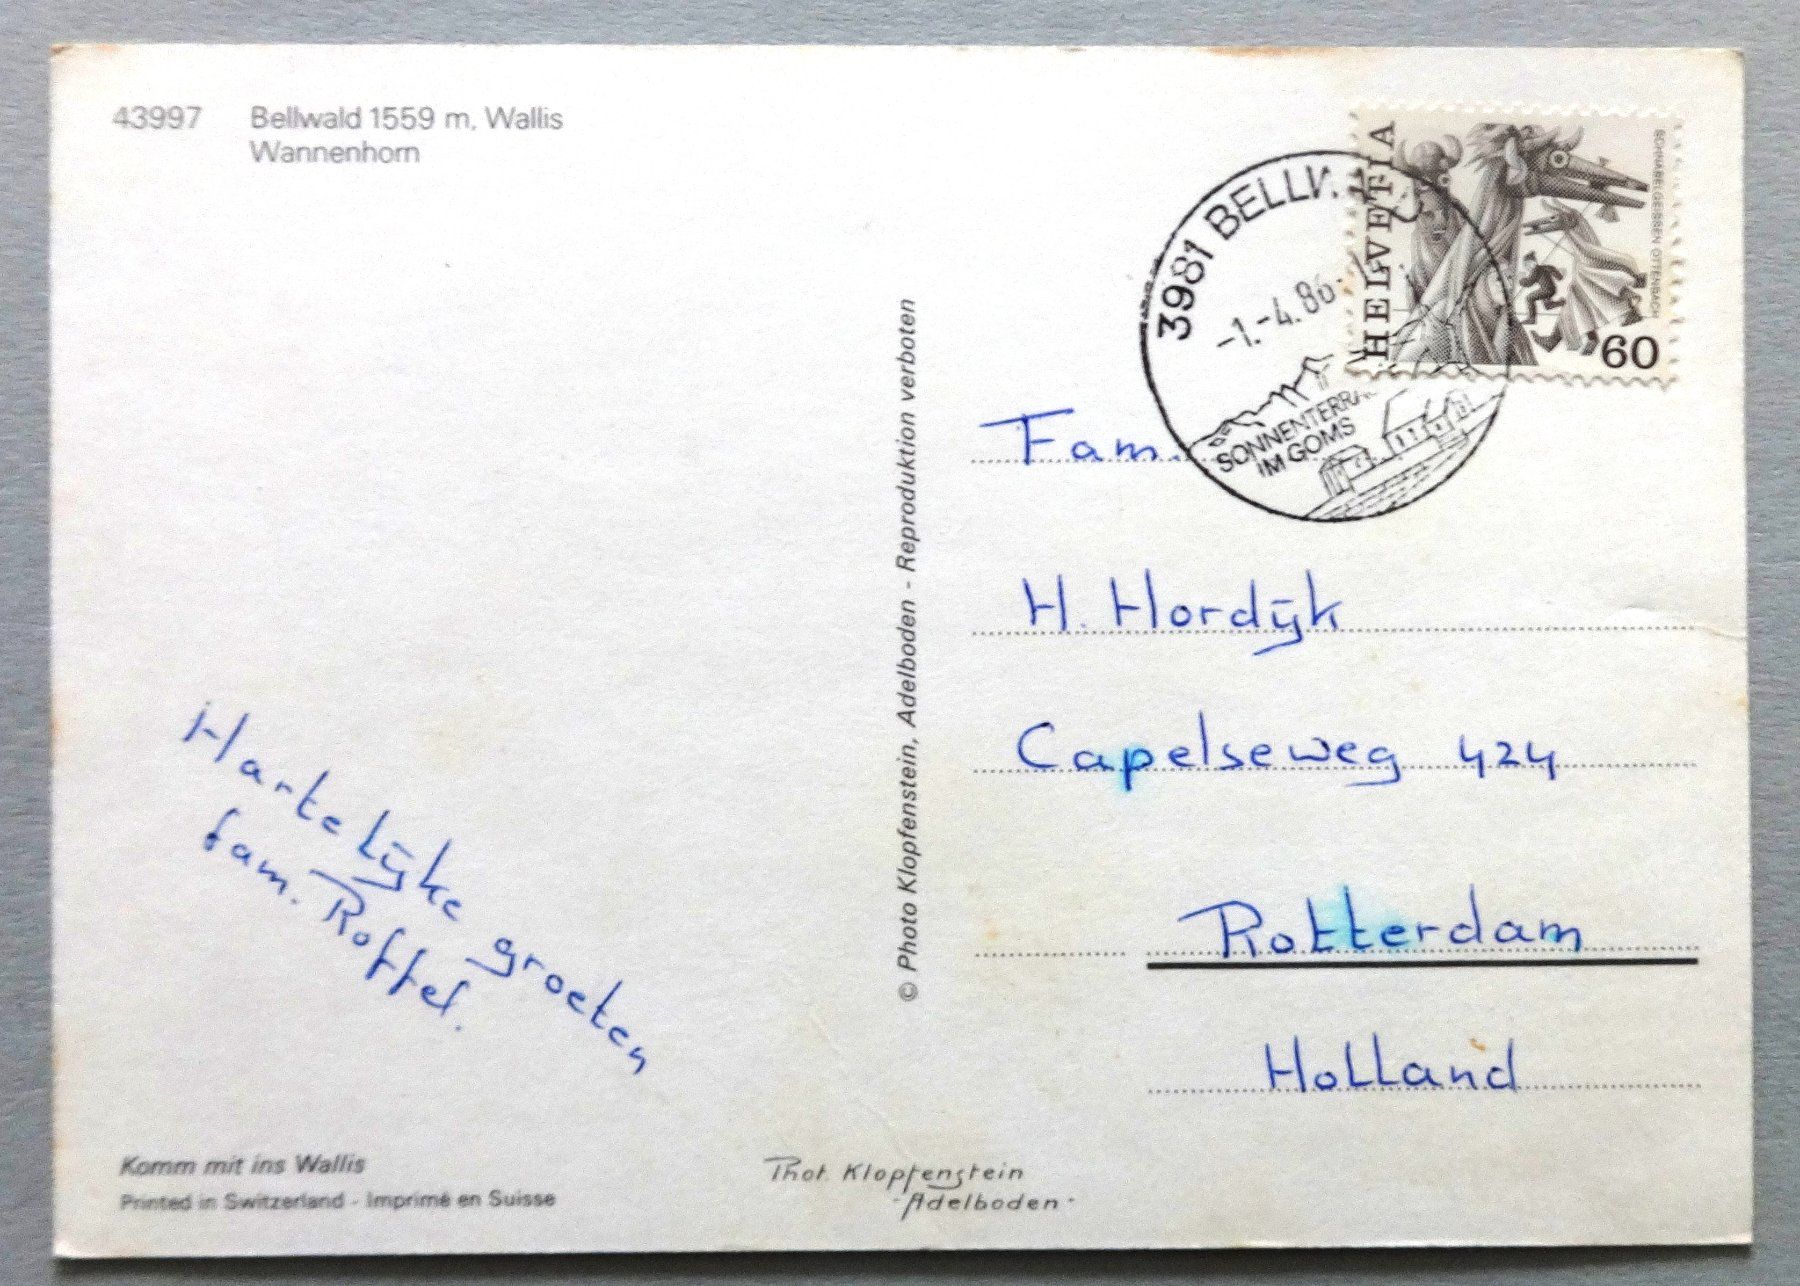 43997 Bellwald 1559 m, Wallis
Wannenhorn
HELVETIA
SCHNABELGEISSEN OTTENBACH
60
3981 BELLW
-1.-4.86
SONNENTERRA
IM GOMS
Fam.
H. Hordijk
Capelseweg 424
Rotterdam
Holland
© Photo Klopfenstein, Adelboden - Reproduktion verboten
Hartelijke groeten
fam. Roffel.
Komm mit ins Wallis
Printed in Switzerland - Imprimé en Suisse
Phot. Klopfenstein
- Adelboden -